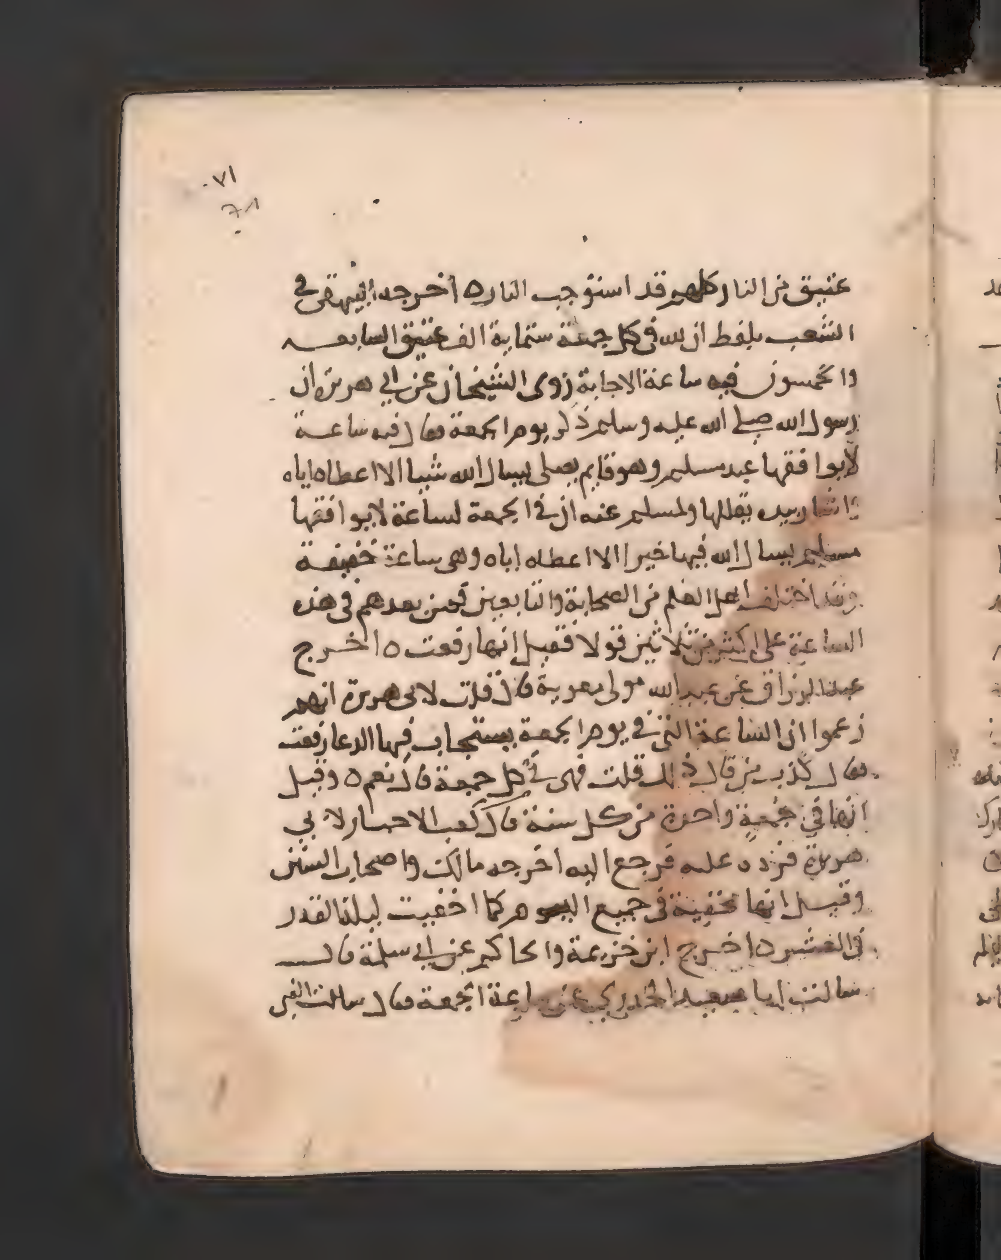 ٧١
٧١
عتيق من النار كلهم قد استوجب النار ه أخرجه البيهقي في
الشعب بلفظ ان لله في كل جمعة ستماية الف عتيق السابعـــه
والخمسون فيه ساعة الاجابة روى الشيخان عن ابي هريرة ان
رسول الله صلى الله عليه وسلم ذكر يوم الجمعة فقال فيه ساعة
لا يوافقها عبد مسلم وهو قايم يصلي يسال الله شيا الا اعطاه اياه
واشار بيده يقللها ولمسلم عنه ان في الجمعة لساعة لا يوافقها
مسلم يسال الله فيها خيرا الا اعطاه اياه وهي ساعة خفيفة
وقد اختلف اهل العلم من الصحابة والتابعين فمن بعدهم في هذه
الساعة على اكثر من ثلاثين قولا فقيل انها رفعت ه اخرج
عبد الرزاق عن عبد الله مولى معوية قال قلت لابي هريرة انهم
زعموا ان الساعة التي في يوم الجمعة يستجاب فيها الدعا رفعت
فقال كذب من قال ذلك قلت فهي في كل جمعة قال نعم ه وقيل
انها في جمعة واحدة من كل سنة قال كعب الاحبار لابي
هريرة فرده عليه فرجع اليه اخرجه مالك واصحاب السنن
وقيل انها مخفية في جميع اليوم كما اخفيت ليلة القدر
في العشر ه اخرج ابن خزيمة والحاكم عن ابي سلمة قالـــ
سالت ابا سعيد الخدري عن ساعة الجمعة فقال سالت النبي